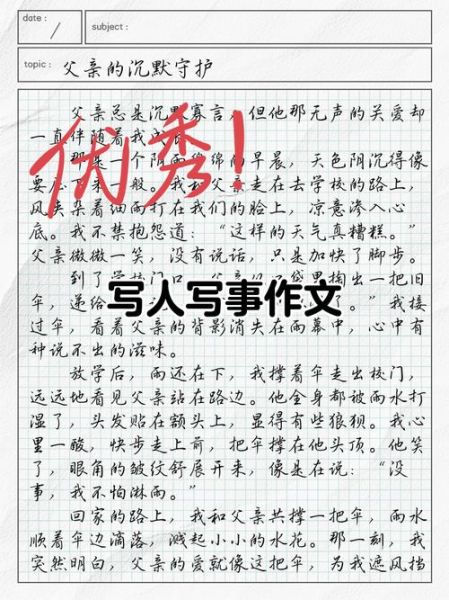 date:
subject:
/
topic: 父亲的沉默守护
父亲总是沉默寡言，但他那无声的关爱却
一直伴随着我成长。
优秀！
那是一个阴雨绵绵的早晨，天色阴沉得像
要压下来一般。我和父亲走在去学校的路上，
风夹杂着细雨打在我们的脸上，凉意渗入心
底。我不禁抱怨道：“这样的天气真糟糕。”
父亲微微一笑，没有说话，只是加快了脚步。
到了学校门口，父亲从口袋里掏出一把旧
伞，递给 了。”我接
写人写事作文
过伞，看着父亲的背影消失在雨幕中，心中有
种说不出的滋味。
放学后，雨还在下，我撑着伞走出校门，
远远地看见父亲站在路边。他全身都被雨水打
湿了，头发贴在额头上，显得有些狼狈。我心
里一酸，快步走上前，把伞撑在他头顶。他笑
了，眼角的皱纹舒展开来，像是在说：“没
事，我不怕淋雨。”
回家的路上，我和父亲共撑一把伞，雨水
顺着伞边滴落，溅起小小的水花。那一刻，我
突然明白，父亲的爱就像这把伞，为我遮风挡